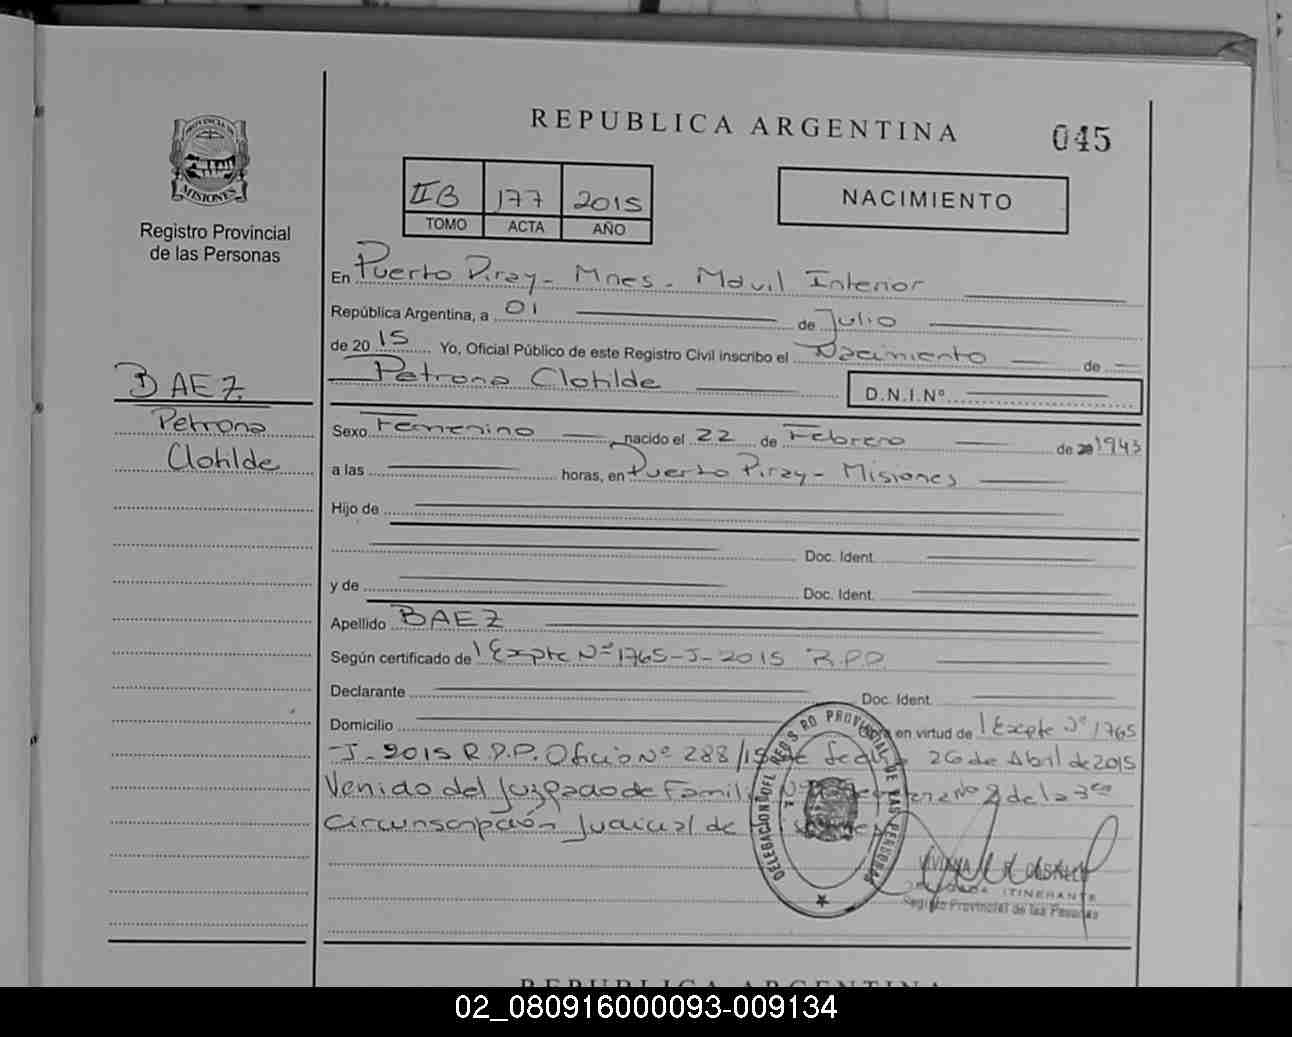 REPUBLICA ARGENTINA
045
PROVINCIA DE
MISIONES
Registro Provincial
de las Personas
IIB 177 2015
TOMO ACTA AÑO
NACIMIENTO
En Puerto Piray - Mnes. Movil Interior
República Argentina, a 01 de Julio
de 2015 Yo, Oficial Público de este Registro Civil inscribo el Nacimiento de
Petrona Clotilde D.N.I.Nº
BAEZ
Petrona
Clotilde
Sexo Femenino nacido el 22 de Febrero de 1943
a las horas, en Puerto Piray - Misiones
Hijo de
Doc. Ident.
y de Doc. Ident.
Apellido BAEZ
Según certificado de Expte Nº 1765-J-2015 R.P.P.
Declarante Doc. Ident.
Domicilio en virtud de Expte Nº 1765
-J-2015 R.P.P. Oficio Nº 288/15 de fecha 26 de Abril de 2015
Venido del Juzgado de Famili Nº 2 de la 3era
Circunscripción Judicial de
DELEGACION DEL REGISTRO PROVINCIAL DE LAS PERSONAS
VIVIANA
DELEGADA ITINERANTE
Registro Provincial de las Personas
REPUBLICA ARGENTINA
02_080916000093-009134